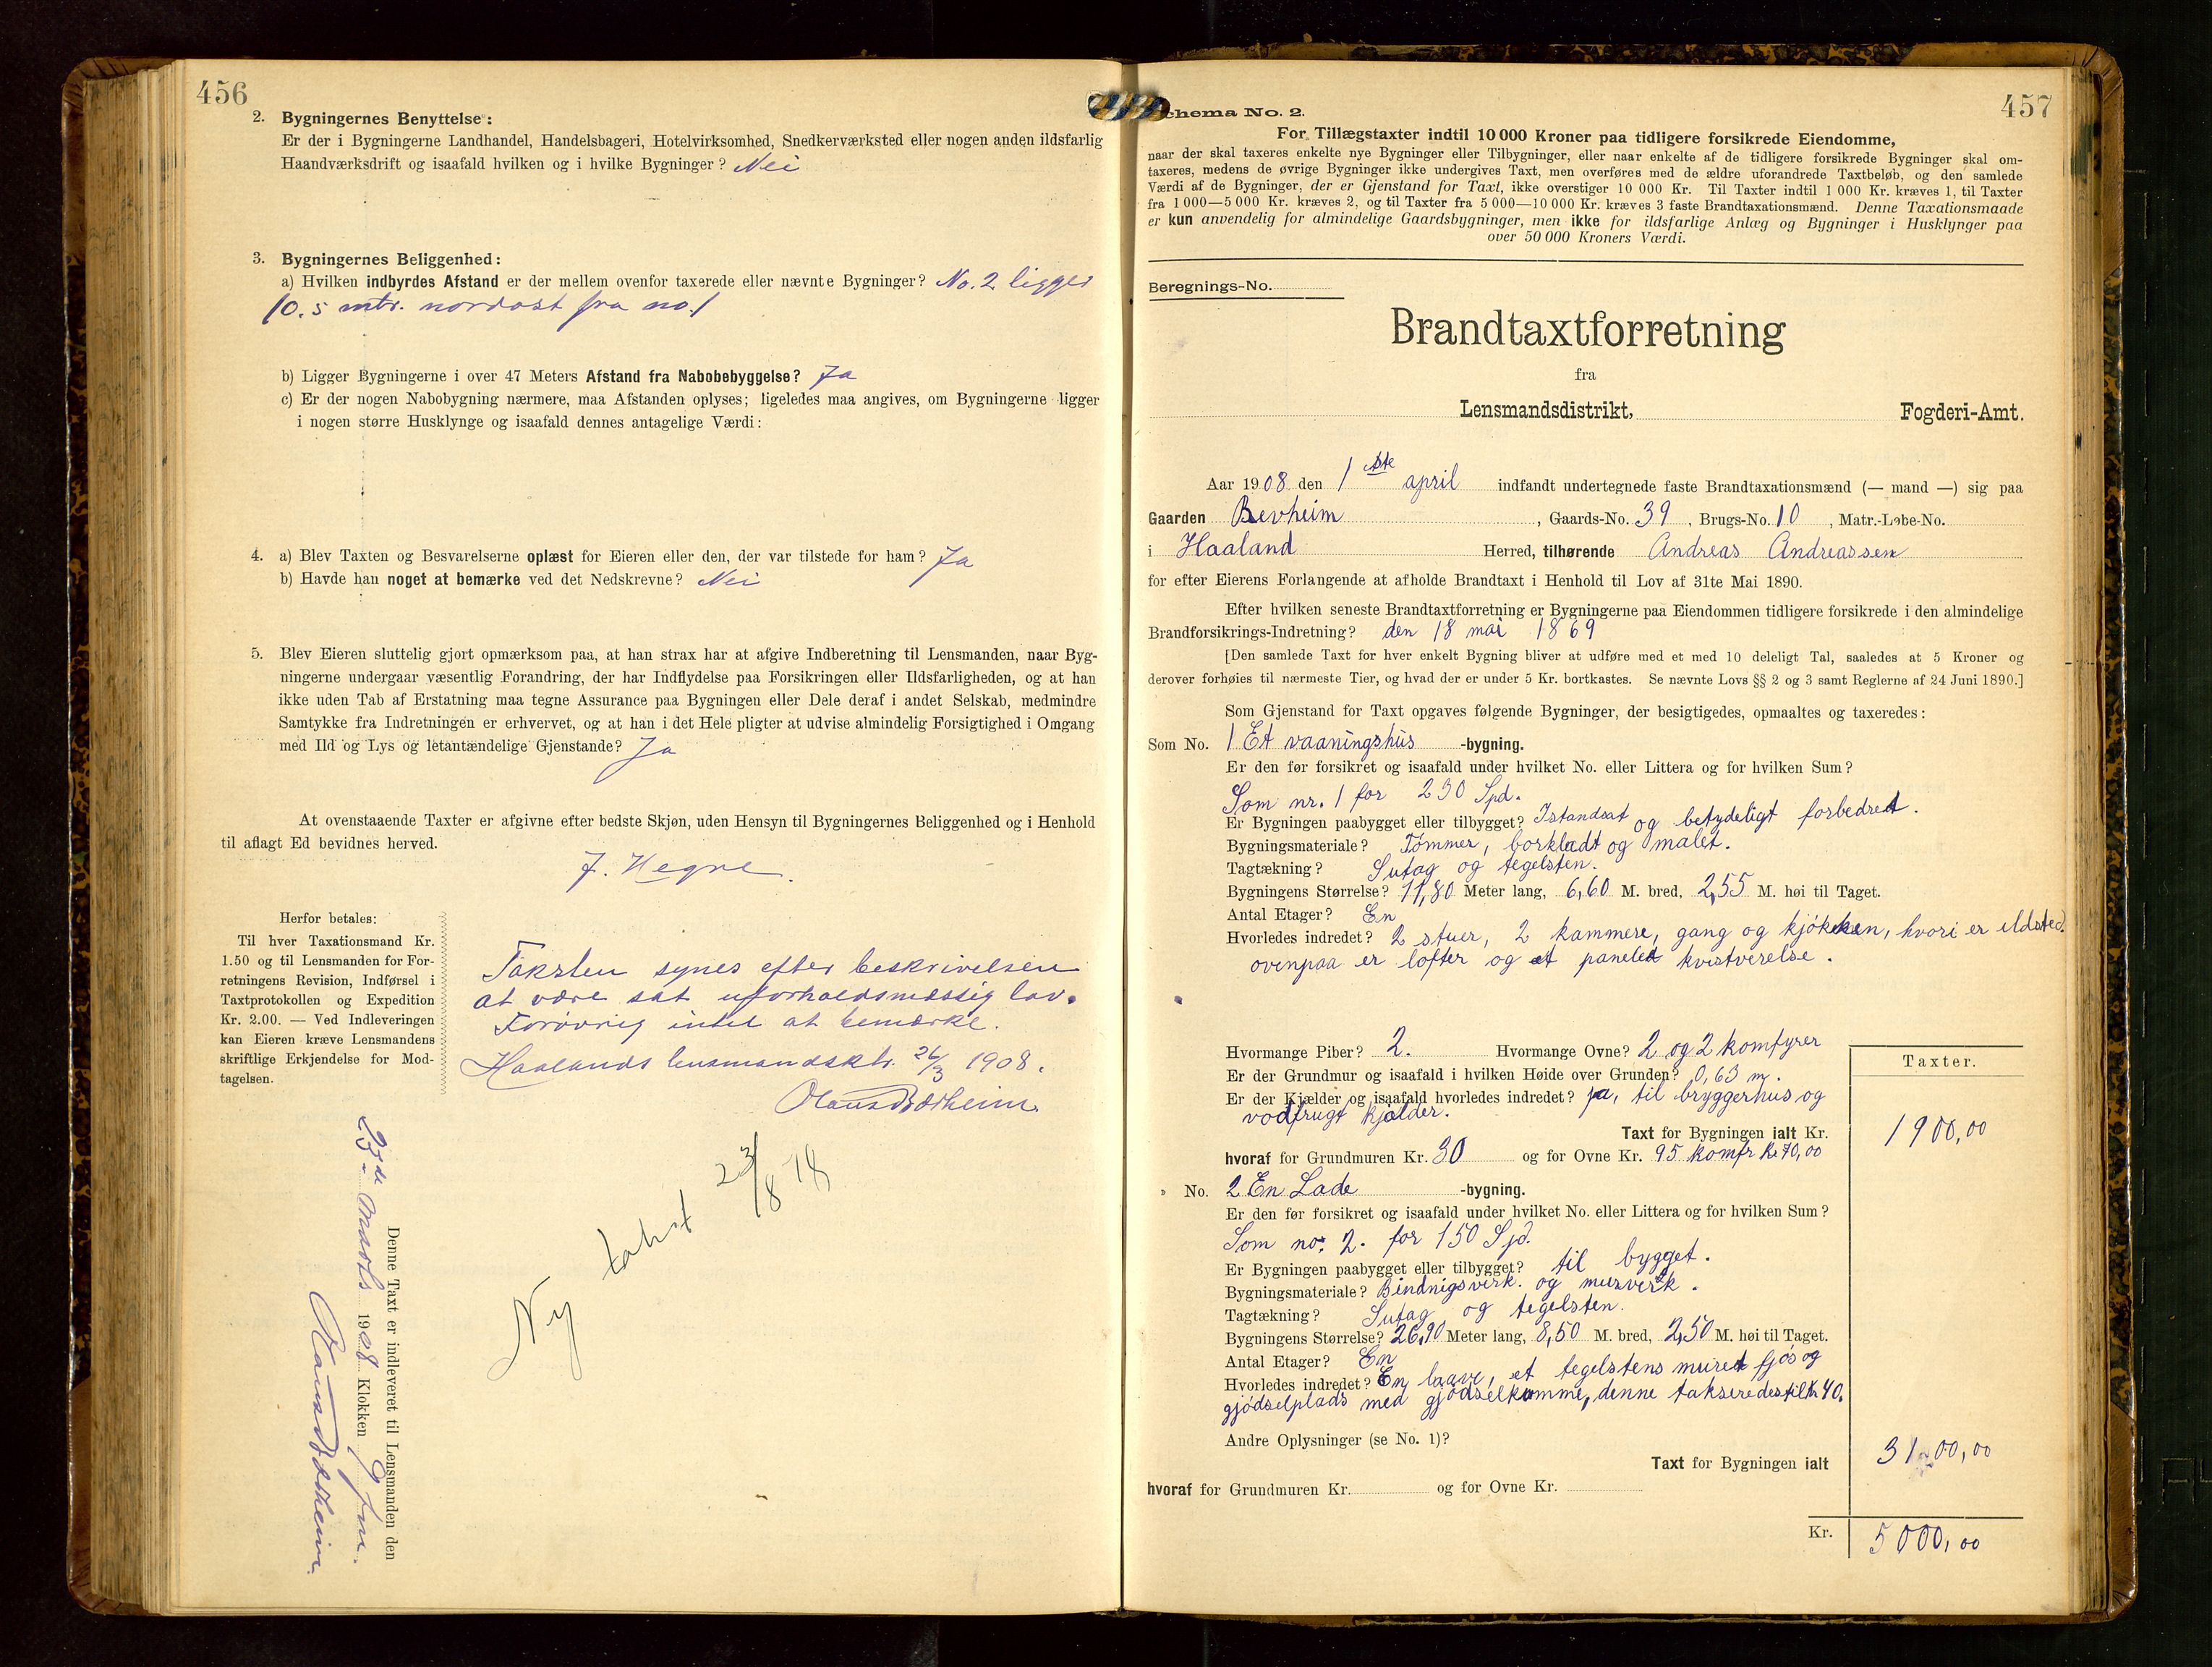 456
2. Bygningernes Benyttelse:
Er der i Bygningerne Landhandel, Handelsbageri, Hotelvirksomhed, Snedkerværksted eller nogen anden ildsfarlig
Haandværksdrift og isaafald hvilken og i hvilke Bygninger? Nei
3. Bygningernes Beliggenhed:
a) Hvilken indbyrdes Afstand er der mellem ovenfor taxerede eller nævnte Bygninger? No. 2 ligger
10.5 mtr. nordost fra no. 1
b) Ligger Bygningerne i over 47 Meters Afstand fra Nabobebyggelse? Ja
c) Er der nogen Nabobygning nærmere, maa Afstanden oplyses; ligeledes maa angives, om Bygningerne ligger
i nogen større Husklynge og isaafald dennes antagelige Værdi:
4. a) Blev Taxten og Besvarelserne oplæst for Eieren eller den, der var tilstede for ham? Ja
b) Havde han noget at bemærke ved det Nedskrevne? Nei
5. Blev Eieren sluttelig gjort opmærksom paa, at han strax har at afgive Indberetning til Lensmanden, naar Byg-
ningerne undergaar væsentlig Forandring, der har Indflydelse paa Forsikringen eller Ildsfarligheden, og at han
ikke uden Tab af Erstatning maa tegne Assurance paa Bygningen eller Dele deraf i andet Selskab, medmindre
Samtykke fra Indretningen er erhvervet, og at han i det Hele pligter at udvise almindelig Forsigtighed i Omgang
med Ild og Lys og letantændelige Gjenstande? Ja
At ovenstaaende Taxter er afgivne efter bedste Skjøn, uden Hensyn til Bygningernes Beliggenhed og i Henhold
til aflagt Ed bevidnes herved.
J. Hegre.
Herfor betales:
Til hver Taxationsmand Kr.
1.50 og til Lensmanden for For-
retningens Revision, Indførsel i
Taxtprotokollen og Expedition
Kr. 2.00. — Ved Indleveringen
kan Eieren kræve Lensmandens
skriftlige Erkjendelse for Mod-
tagelsen.
Taksten synes efter beskrivelsen
at være sat uforholdsmæssig lav.
Forøvrig intet at bemærke.
Haalands lensmandsktr. 26/3 1908.
Olaus Bærheim
Ny takst 23/8 18
Denne Taxt er indleveret til Lensmanden den
23de marts 1908 Klokken 9 fm.
Olaus Bærheim
457
Schema No. 2.
For Tillægstaxter indtil 10 000 Kroner paa tidligere forsikrede Eiendomme,
naar der skal taxeres enkelte nye Bygninger eller Tilbygninger, eller naar enkelte af de tidligere forsikrede Bygninger skal om-
taxeres, medens de øvrige Bygninger ikke undergives Taxt, men overføres med de ældre uforandrede Taxtbeløb, og den samlede
Værdi af de Bygninger, der er Gjenstand for Taxt, ikke overstiger 10 000 Kr. Til Taxter indtil 1 000 Kr. kræves 1, til Taxter
fra 1 000—5 000 Kr. kræves 2, og til Taxter fra 5 000—10 000 Kr. kræves 3 faste Brandtaxationsmænd. Denne Taxationsmaade
er kun anvendelig for almindelige Gaardsbygninger, men ikke for ildsfarlige Anlæg og Bygninger i Husklynger paa
over 50 000 Kroners Værdi.
Beregnings-No.
Brandtaxtforretning
fra
Lensmandsdistrikt, Fogderi-Amt.
Aar 1908 den 1ste april indfandt undertegnede faste Brandtaxationsmænd (— mand —) sig paa
Gaarden Bevheim, Gaards-No. 39, Brugs-No. 10, Matr.-Løbe-No.
i Haaland Herred, tilhørende Andreas Andreassen
for efter Eierens Forlangende at afholde Brandtaxt i Henhold til Lov af 31te Mai 1890.
Efter hvilken seneste Brandtaxtforretning er Bygningerne paa Eiendommen tidligere forsikrede i den almindelige
Brandforsikrings-Indretning? den 18 mai 1869
[Den samlede Taxt for hver enkelt Bygning bliver at udføre med et med 10 deleligt Tal, saaledes at 5 Kroner og
derover forhøies til nærmeste Tier, og hvad der er under 5 Kr. bortkastes. Se nævnte Lovs §§ 2 og 3 samt Reglerne af 24 Juni 1890.]
Som Gjenstand for Taxt opgaves følgende Bygninger, der besigtigedes, opmaaltes og taxeredes:
Som No. 1 Et vaaningshus -bygning.
Er den før forsikret og isaafald under hvilket No. eller Littera og for hvilken Sum?
Som nr. 1 for 230 Spd.
Er Bygningen paabygget eller tilbygget? Istandsat og betydeligt forbedret.
Bygningsmateriale? Tømmer, borkladt og malet.
Tagtækning? Sutag og tegelsten.
Bygningens Størrelse? 11,80 Meter lang, 6,60 M. bred, 2,55 M. høi til Taget.
Antal Etager? En
Hvorledes indredet? 2 stuer, 2 kammere, gang og kjøkken, hvori er ildsted.
ovenpaa er lofter og et panelet kvistverelse.
Hvormange Piber? 2. Hvormange Ovne? 2 og 2 komfyrer
Er der Grundmur og isaafald i hvilken Høide over Grunden? 0,63 m.
Er der Kjælder og isaafald hvorledes indredet? ja, til bryggerhus og
vodfrugt kjælder.
Taxter.
Taxt for Bygningen ialt Kr. 1900,00
hvoraf for Grundmuren Kr. 30 og for Ovne Kr. 95 komfr Kr. 70,00
" No. 2 En Lade -bygning.
Er den før forsikret og isaafald under hvilket No. eller Littera og for hvilken Sum?
Som no. 2. for 150 Spd.
Er Bygningen paabygget eller tilbygget? til bygget.
Bygningsmateriale? Bindnigsverk. og murverk.
Tagtækning? Sutag og tegelsten.
Bygningens Størrelse? 26,90 Meter lang, 8,50 M. bred, 2,50 M. høi til Taget.
Antal Etager? En
Hvorledes indredet? En laave, et tegelstens muret fjøs og
gjødselplads med gjødselkumme, denne takseredes til Kr 40.
Andre Oplysninger (se No. 1)?
Taxt for Bygningen ialt 3100,00
hvoraf for Grundmuren Kr. og for Ovne Kr.
Kr. 5000,00